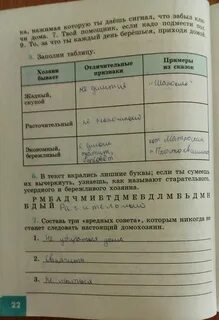 ка, нажимая которую ты даёшь сигнал, что забыл клю-
чи дома. 7. Твой помощник, если надо подмести пол
9. То, за что ты каждый день берёшься, приходя домой.
Заполни таблицу.
Хозяин бывает
Отличительные признаки
Примеры из сказок
Жадный, скупой
не делится
Расточительный
не экономный
Экономный, бережливый
кот Матроскин
6. В текст вкрались лишние буквы; если ты сумеешь
их вычеркнуть, узнаешь, как называют старательного,
усердного и бережливого хозяина.
7. Составь три «вредных совета», которым никогда не
станет следовать настоящий домохозяин.
1. Не убираться дома
2.
3. Не
22